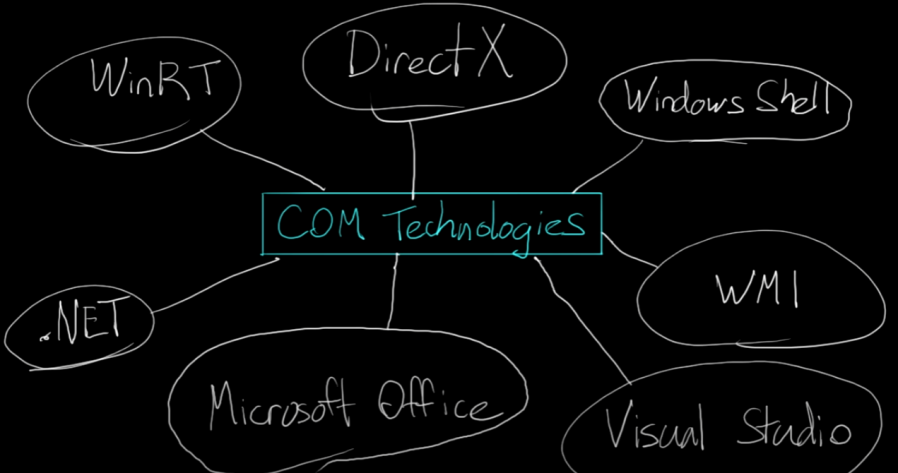 WinRT
DirectX
Windows Shell
COM Technologies
.NET
WMI
Microsoft Office
Visual Studio